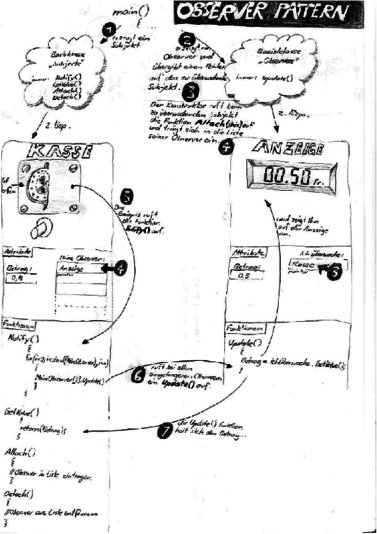 main()
{
OBSERVER PATTERN
1
erzeugt ein
Subjekt
Basisklasse
"Subjekt"
Notify()
GetValue()
Attach()
Detach()
2
Observer und
übergibt einen Pointer
auf das zu überwachende
Subjekt.
Basisklasse
"Observer"
Update()
3
Der Konstruktor ruft beim
zu überwachenden Subjekt
die Funktion Attach(this) auf
und trägt sich in die Liste
seiner Observer ein
4
z. Bsp.
z. Bsp.
KASSE
ANZEIGE
00.50 Fr.
5
Das
Ereignis ruft
die Funktion
auf.
und zeigt ihn
auf der Anzeige
an.
Attribute
Betrag:
0,5
Meine Observer:
Anzeige
4
Attribute
Betrag:
0,5
Ich überwache:
Kasse
3
Funktionen
Notify()
{
MeineObserver[i].Update()
}
Funktionen
Update()
{
Betrag = Ichüberwache.GetValue();
}
6
ruft bei allen
eingetragenen Observern
ein Update() auf.
7
die Update() Funktion
holt sich den Betrag...
GetValue()
{
return(Betrag);
}
Attach()
{
//Observer in Liste eintragen
}
Detach()
{
//Observer aus Liste entfernen
}